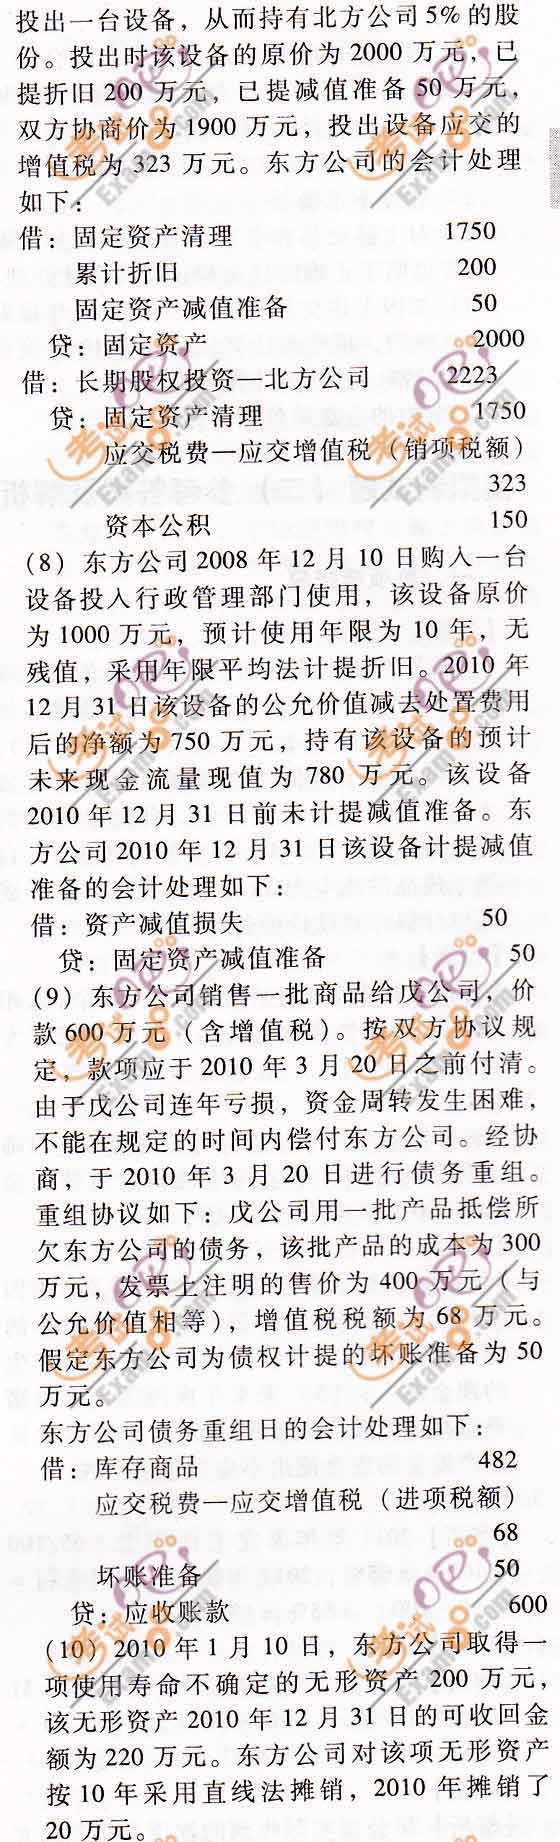 投出一台设备，从而持有北方公司5%的股
份。投出时该设备的原价为2000万元，已
提折旧200万元，已提减值准备50万元，
双方协商价为1900万元，投出设备应交的
增值税为323万元。东方公司的会计处理
如下：
借：固定资产清理 1750
累计折旧 200
固定资产减值准备 50
贷：固定资产 2000
借：长期股权投资—北方公司 2223
贷：固定资产清理 1750
应交税费—应交增值税（销项税额）
323
资本公积 150
(8) 东方公司2008年12月10日购入一台
设备投入行政管理部门使用，该设备原价
为1000万元，预计使用年限为10年，无
残值，采用年限平均法计提折旧。2010年
12月31日该设备的公允价值减去处置费用
后的净额为750万元，持有该设备的预计
未来现金流量现值为780万元。该设备
2010年12月31日前未计提减值准备。东
方公司2010年12月31日该设备计提减值
准备的会计处理如下：
借：资产减值损失 50
贷：固定资产减值准备 50
(9) 东方公司销售一批商品给戊公司，价
款600万元（含增值税）。按双方协议规
定，款项应于2010年3月20日之前付清。
由于戊公司连年亏损，资金周转发生困难，
不能在规定的时间内偿付东方公司。经协
商，于2010年3月20日进行债务重组。
重组协议如下：戊公司用一批产品抵偿所
欠东方公司的债务，该批产品的成本为300
万元，发票上注明的售价为400万元（与
公允价值相等），增值税税额为68万元。
假定东方公司为债权计提的坏账准备为50
万元。
东方公司债务重组日的会计处理如下：
借：库存商品 482
应交税费—应交增值税（进项税额）
68
坏账准备 50
贷：应收账款 600
(10) 2010年1月10日，东方公司取得一
项使用寿命不确定的无形资产200万元，
该无形资产2010年12月31日的可收回金
额为220万元。东方公司对该项无形资产
按10年采用直线法摊销，2010年摊销了
20万元。